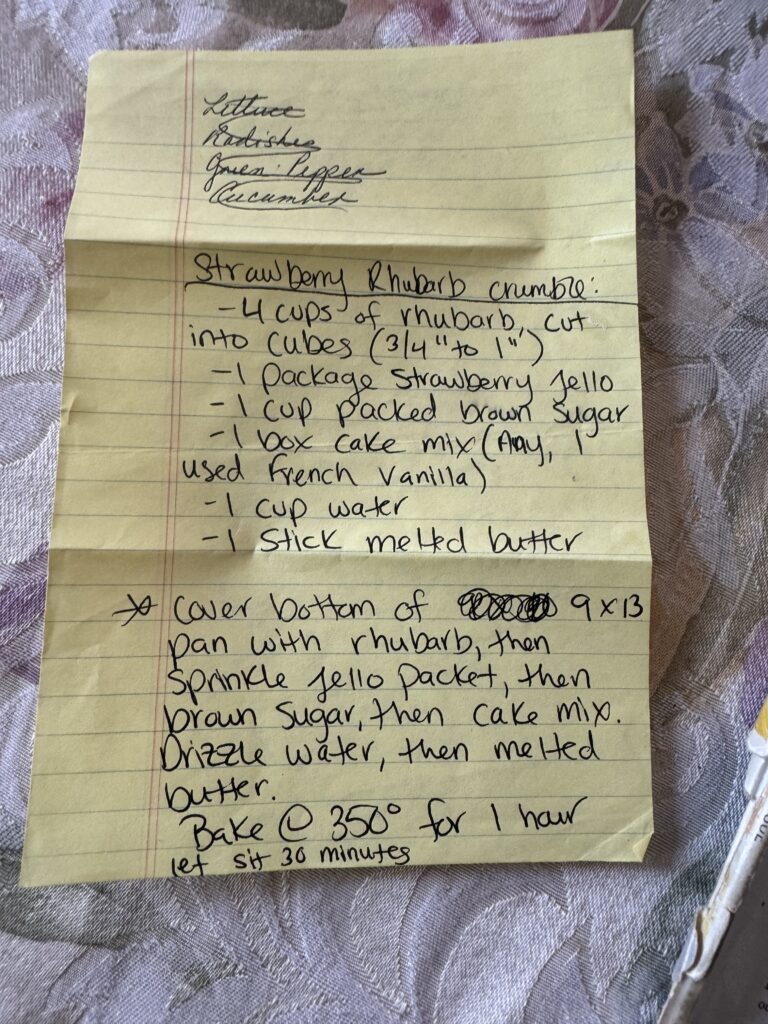 Lettuce
Radishes
Green Pepper
Cucumber
Strawberry Rhubarb crumble:
-4 cups of rhubarb, cut
into cubes (3/4" to 1")
-1 package strawberry jello
-1 cup packed brown sugar
-1 box cake mix (Any, I
used French Vanilla)
-1 cup water
-1 stick melted butter
* cover bottom of 9x13
pan with rhubarb, then
sprinkle jello packet, then
brown sugar, then cake mix.
Drizzle water, then melted
butter.
Bake @ 350° for 1 hour
let sit 30 minutes